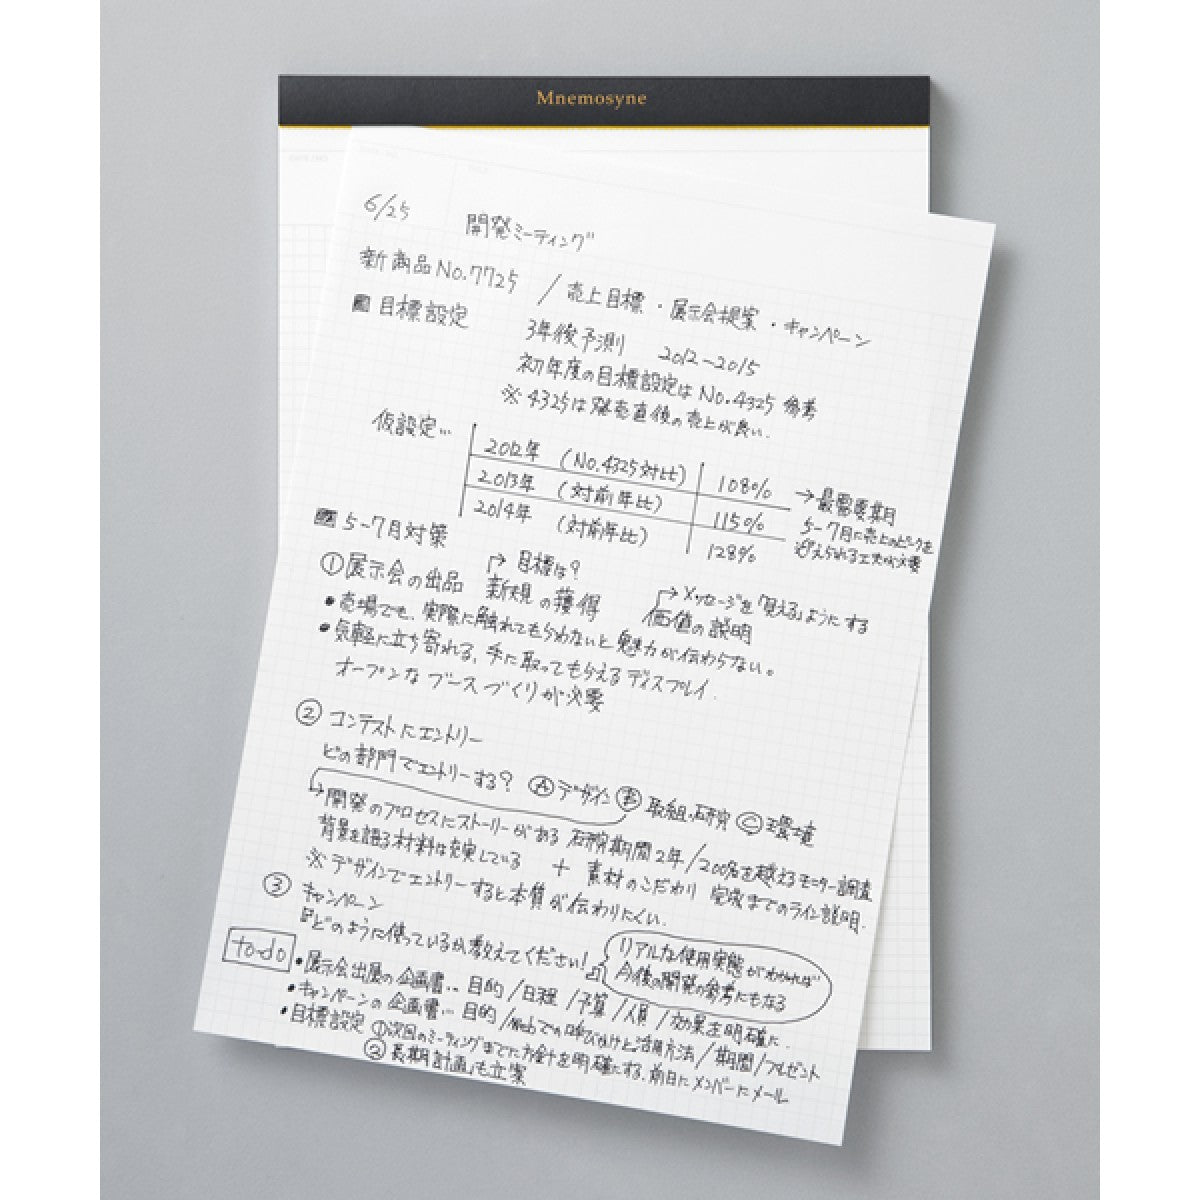 Mnemosyne
6/25 開発ミーティング
新商品No.7725 / 売上目標・展示会提案・キャンペーン
目標設定
3年後予測 2012-2015
初年度の目標設定はNo.4325参考
※4325は発売直後の売上が良い.
仮設定…
2012年 (No.4325対比) 108%
2013年 (対前年比) 115%
2014年 (対前年比) 128%
→最需要期
5-7月に売上のピークを
迎えられる工夫が必要
5-7月対策
①展示会の出品
→目標は?
新規の獲得
→メッセージを「見える」ようにする
価値の説明
•売場でも、実際に触れてもらわないと魅力が伝わらない。
•気軽に立ち寄れる、手に取ってもらえるディスプレイ.
オープンなブースづくりが必要
②コンテストにエントリー
どの部門でエントリーする? Ⓐデザイン Ⓑ取組・研究 Ⓒ環境
→開発のプロセスにストーリーがある 研究期間2年/200名を越えるモニター調査
背景を語る材料は充実している + 素材のこだわり 完成までのライン説明.
※デザインでエントリーすると本質が伝わりにくい.
③キャンペーン
「どのように使っているか教えてください!」
リアルな使用実態がわかれば
今後の開発の参考にもなる
to-do
•展示会出展の企画書… 目的/日程/予算/人員/効果を明確に.
•キャンペーンの企画書… 目的/Webでの呼びかけと活用方法/期間/プレゼント
•目標設定 ①次回のミーティングまでに方針を明確にする.前日にメンバーにメール
②長期計画も立案